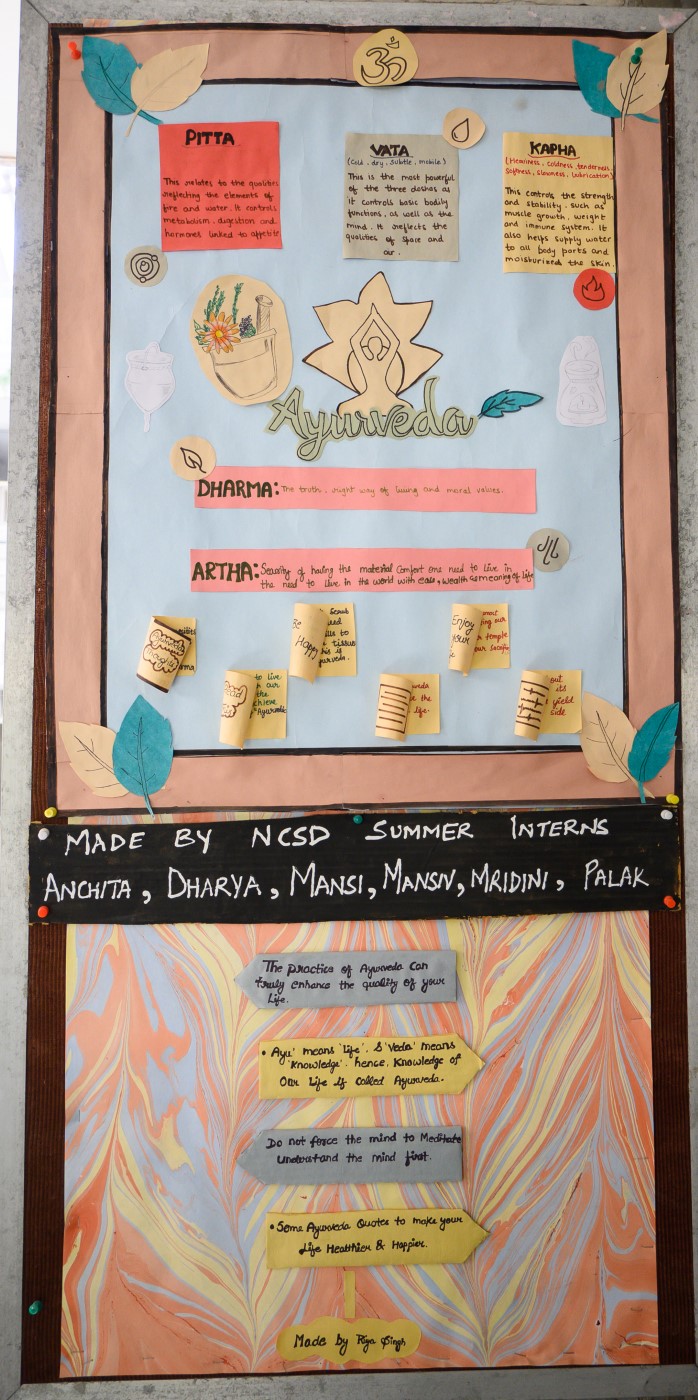 ॐ
PITTA
This relates to the qualities
reflecting the elements of
fire and water. It controls
metabolism, digestion and
hormones linked to appetite
VATA
(Cold, dry, subtle, mobile)
This is the most powerful
of the three doshas as
it controls basic bodily
functions, as well as the
mind. It reflects the
qualities of space and
air.
KAPHA
(Heaviness, coldness, tenderness,
Softness, slowness, lubrication)
This controls the strength
and stability, such as
muscle growth, weight
and immune system. It
also helps supply water
to all body parts and
moisturized the skin.
Ayurveda
DHARMA: The truth, right way of living and moral values.
ARTHA: Security of having the material comfort one need to live in
the need to live in the world with ease, wealth as meaning of life
Happy
Enjoy
your
to live
our
the
achieve
Ayurvedic
tissue
his is
temple
the
life.
out
its
yield
side
MADE BY NCSD SUMMER INTERNS
ANCHITA, DHARYA, MANSI, MANSIV, MRIDINI, PALAK
The practice of Ayurveda Can
truly enhance the quality of your
Life.
• 'Ayu' means 'life'. & 'Veda' means
'Knowledge'. hence, Knowledge of
Our Life is called Ayurveda.
Do not force the mind to Meditate
Understand the mind first.
• Some Ayurveda Quotes to make your
Life Healthier & Happier.
Made by Riya Singh